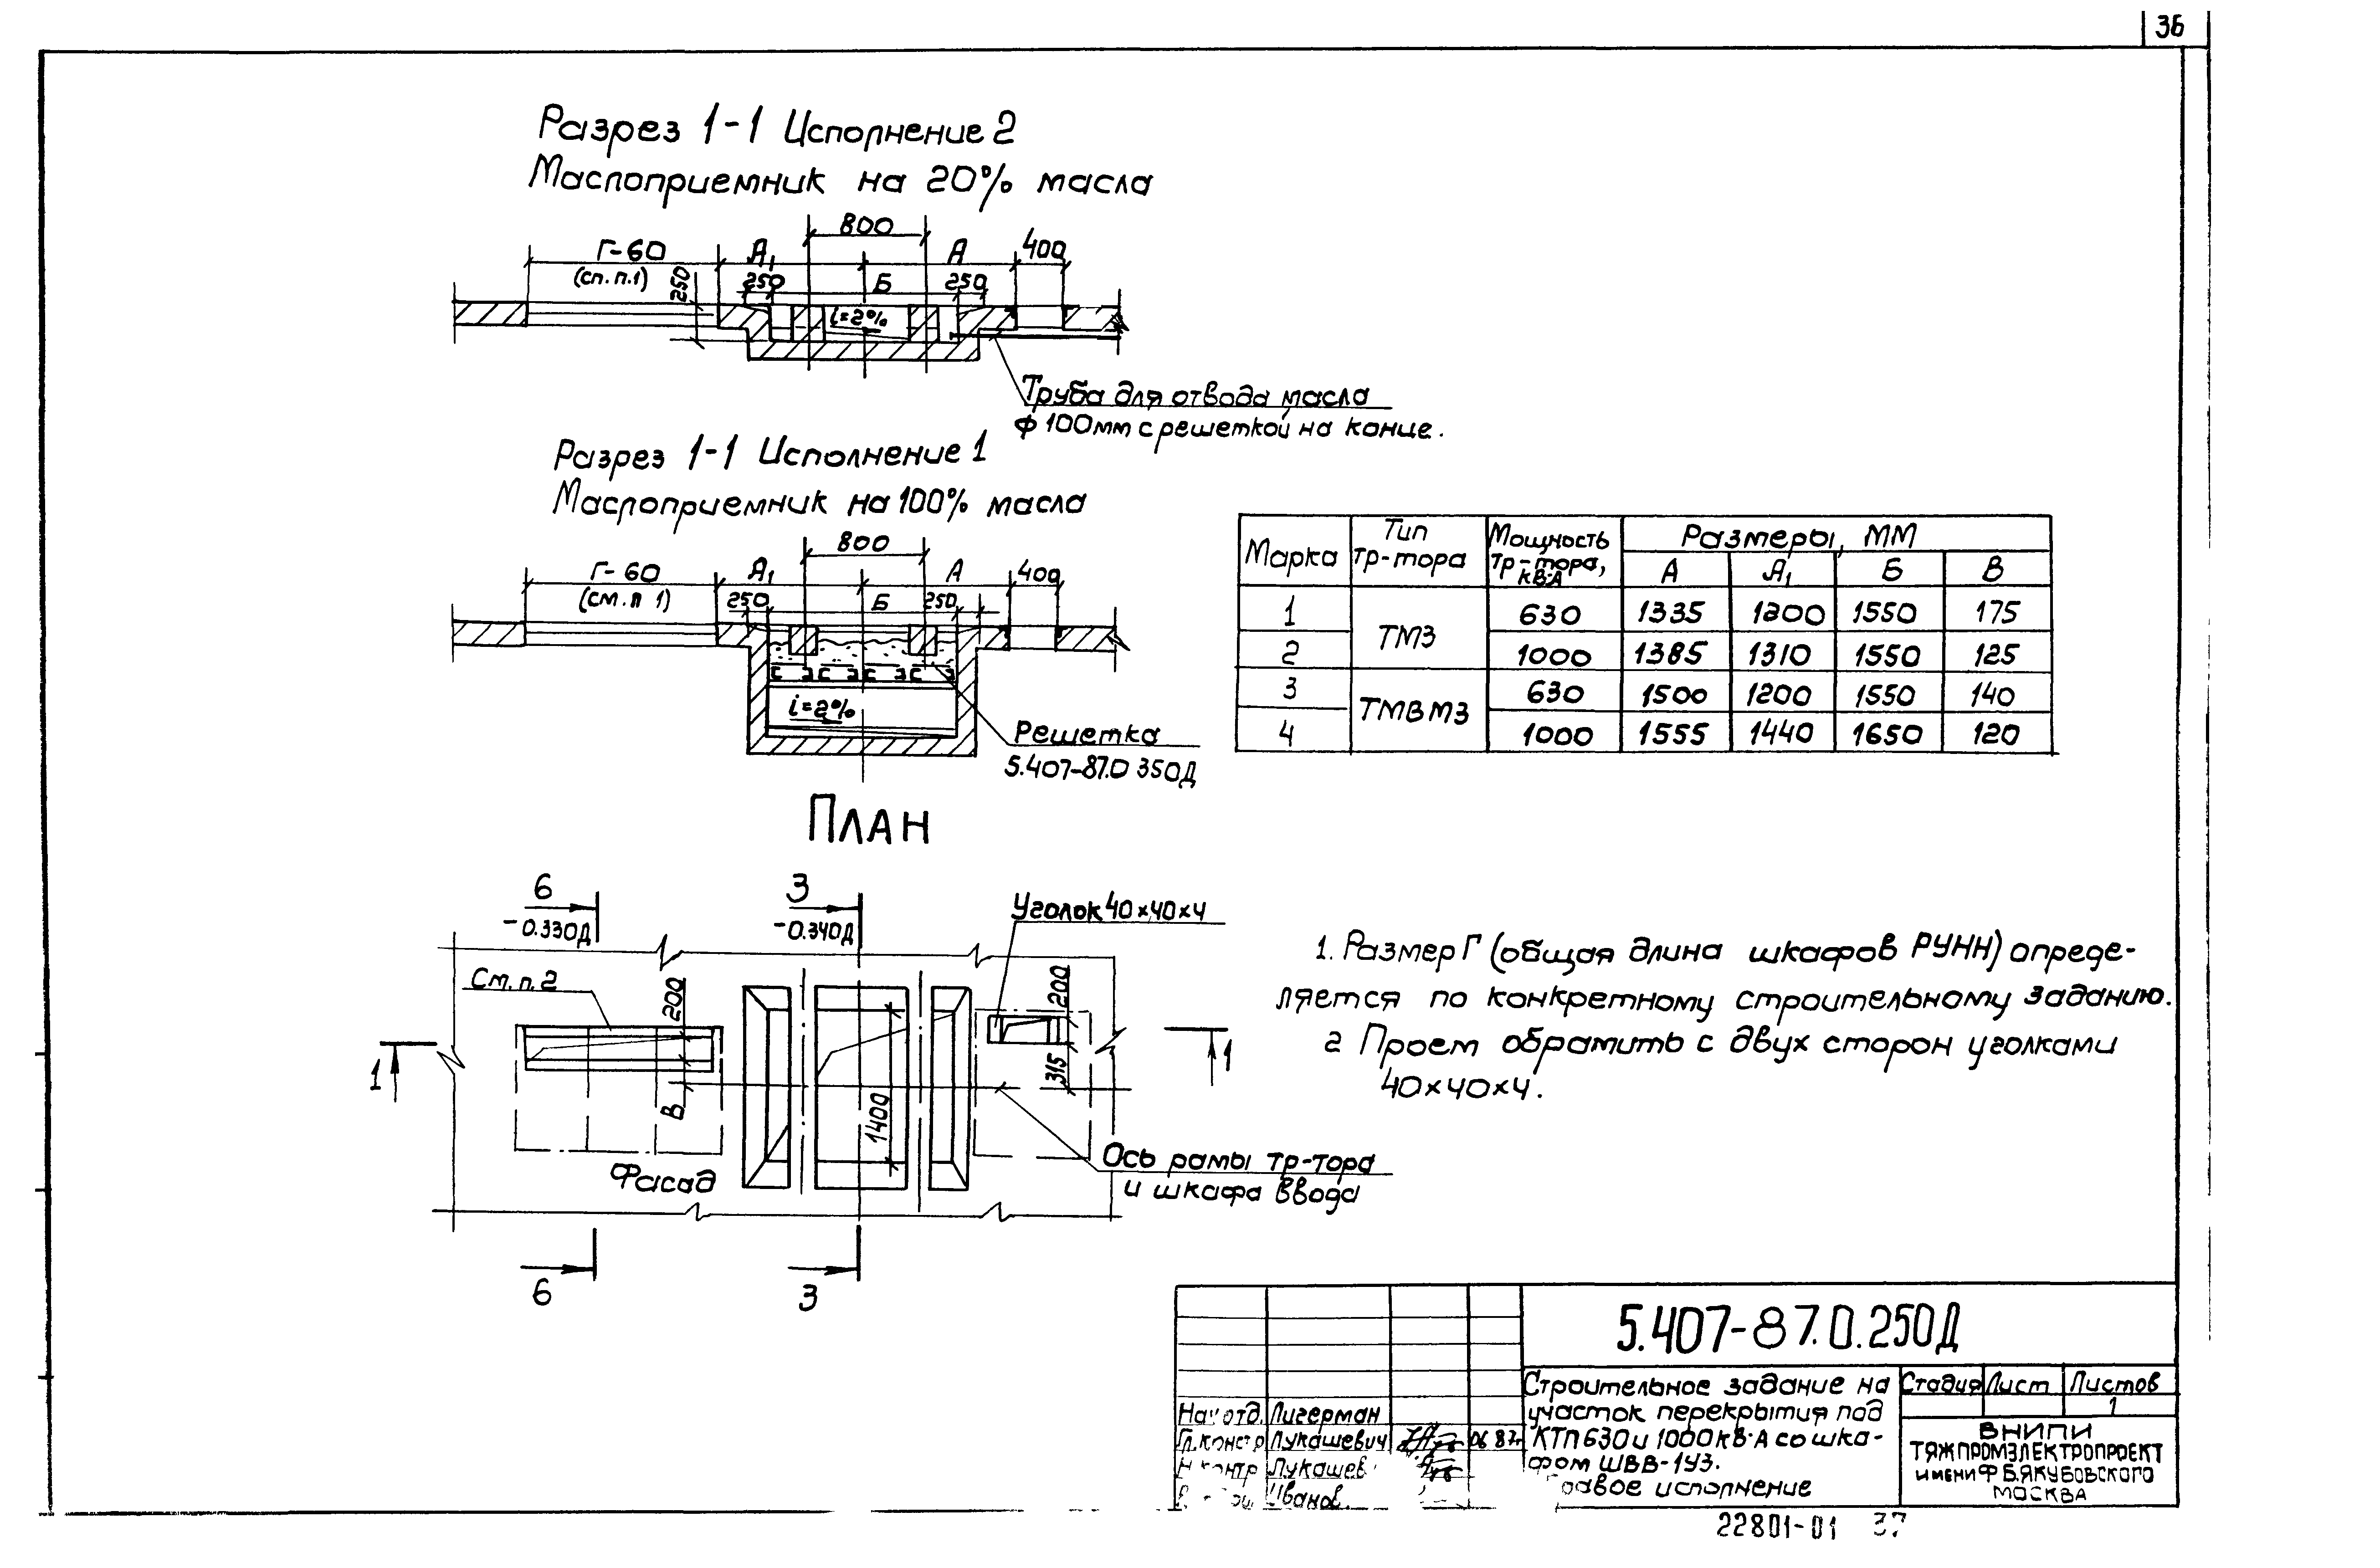 36
Разрез 1-1 Исполнение 2
Маслоприемник на 20% масла
800
Г-60 А₁ А 400
(сп. п.1)
250
250 Б 250
i=2%
Труба для отвода масла
ф 100мм с решеткой на конце.
Разрез 1-1 Исполнение 1
Маслоприемник на 100% масла
800
Г-60 А₁ А 400
(см. п 1)
250 Б 250
i=2%
Решетка
5.407-87.0 350Д
Марка Тип тр-тора Мощность тр-тора, кв·А Размеры, мм
А А₁ Б В
1 ТМЗ 630 1335 1200 1550 175
2 1000 1385 1310 1550 125
3 ТМВМЗ 630 1500 1200 1550 140
4 1000 1555 1440 1650 120
План
6 3
-0.330Д -0.340Д
Уголок 40×40×4
См. п. 2
200
200
1 1
315
В
1400
Фасад
Ось рамы тр-тора
и шкафа ввода
6 3
1. Размер Г (общая длина шкафов РУНН) опреде-
ляется по конкретному строительному заданию.
2 Проем обрамить с двух сторон уголками
40×40×4.
5.407-87.0.250Д
Строительное задание на
участок перекрытия под
КТП 630 и 1000 кв·А со шка-
фом ШВВ-1У3.
исполнение
Стадия Лист Листов
1
ВНИПИ
ТЯЖПРОМЭЛЕКТРОПРОЕКТ
имени Ф.Б.ЯКУБОВСКОГО
МОСКВА
Нач отд. Лигерман
Гл.констр Лукашевич 06 87г
22801-01 37